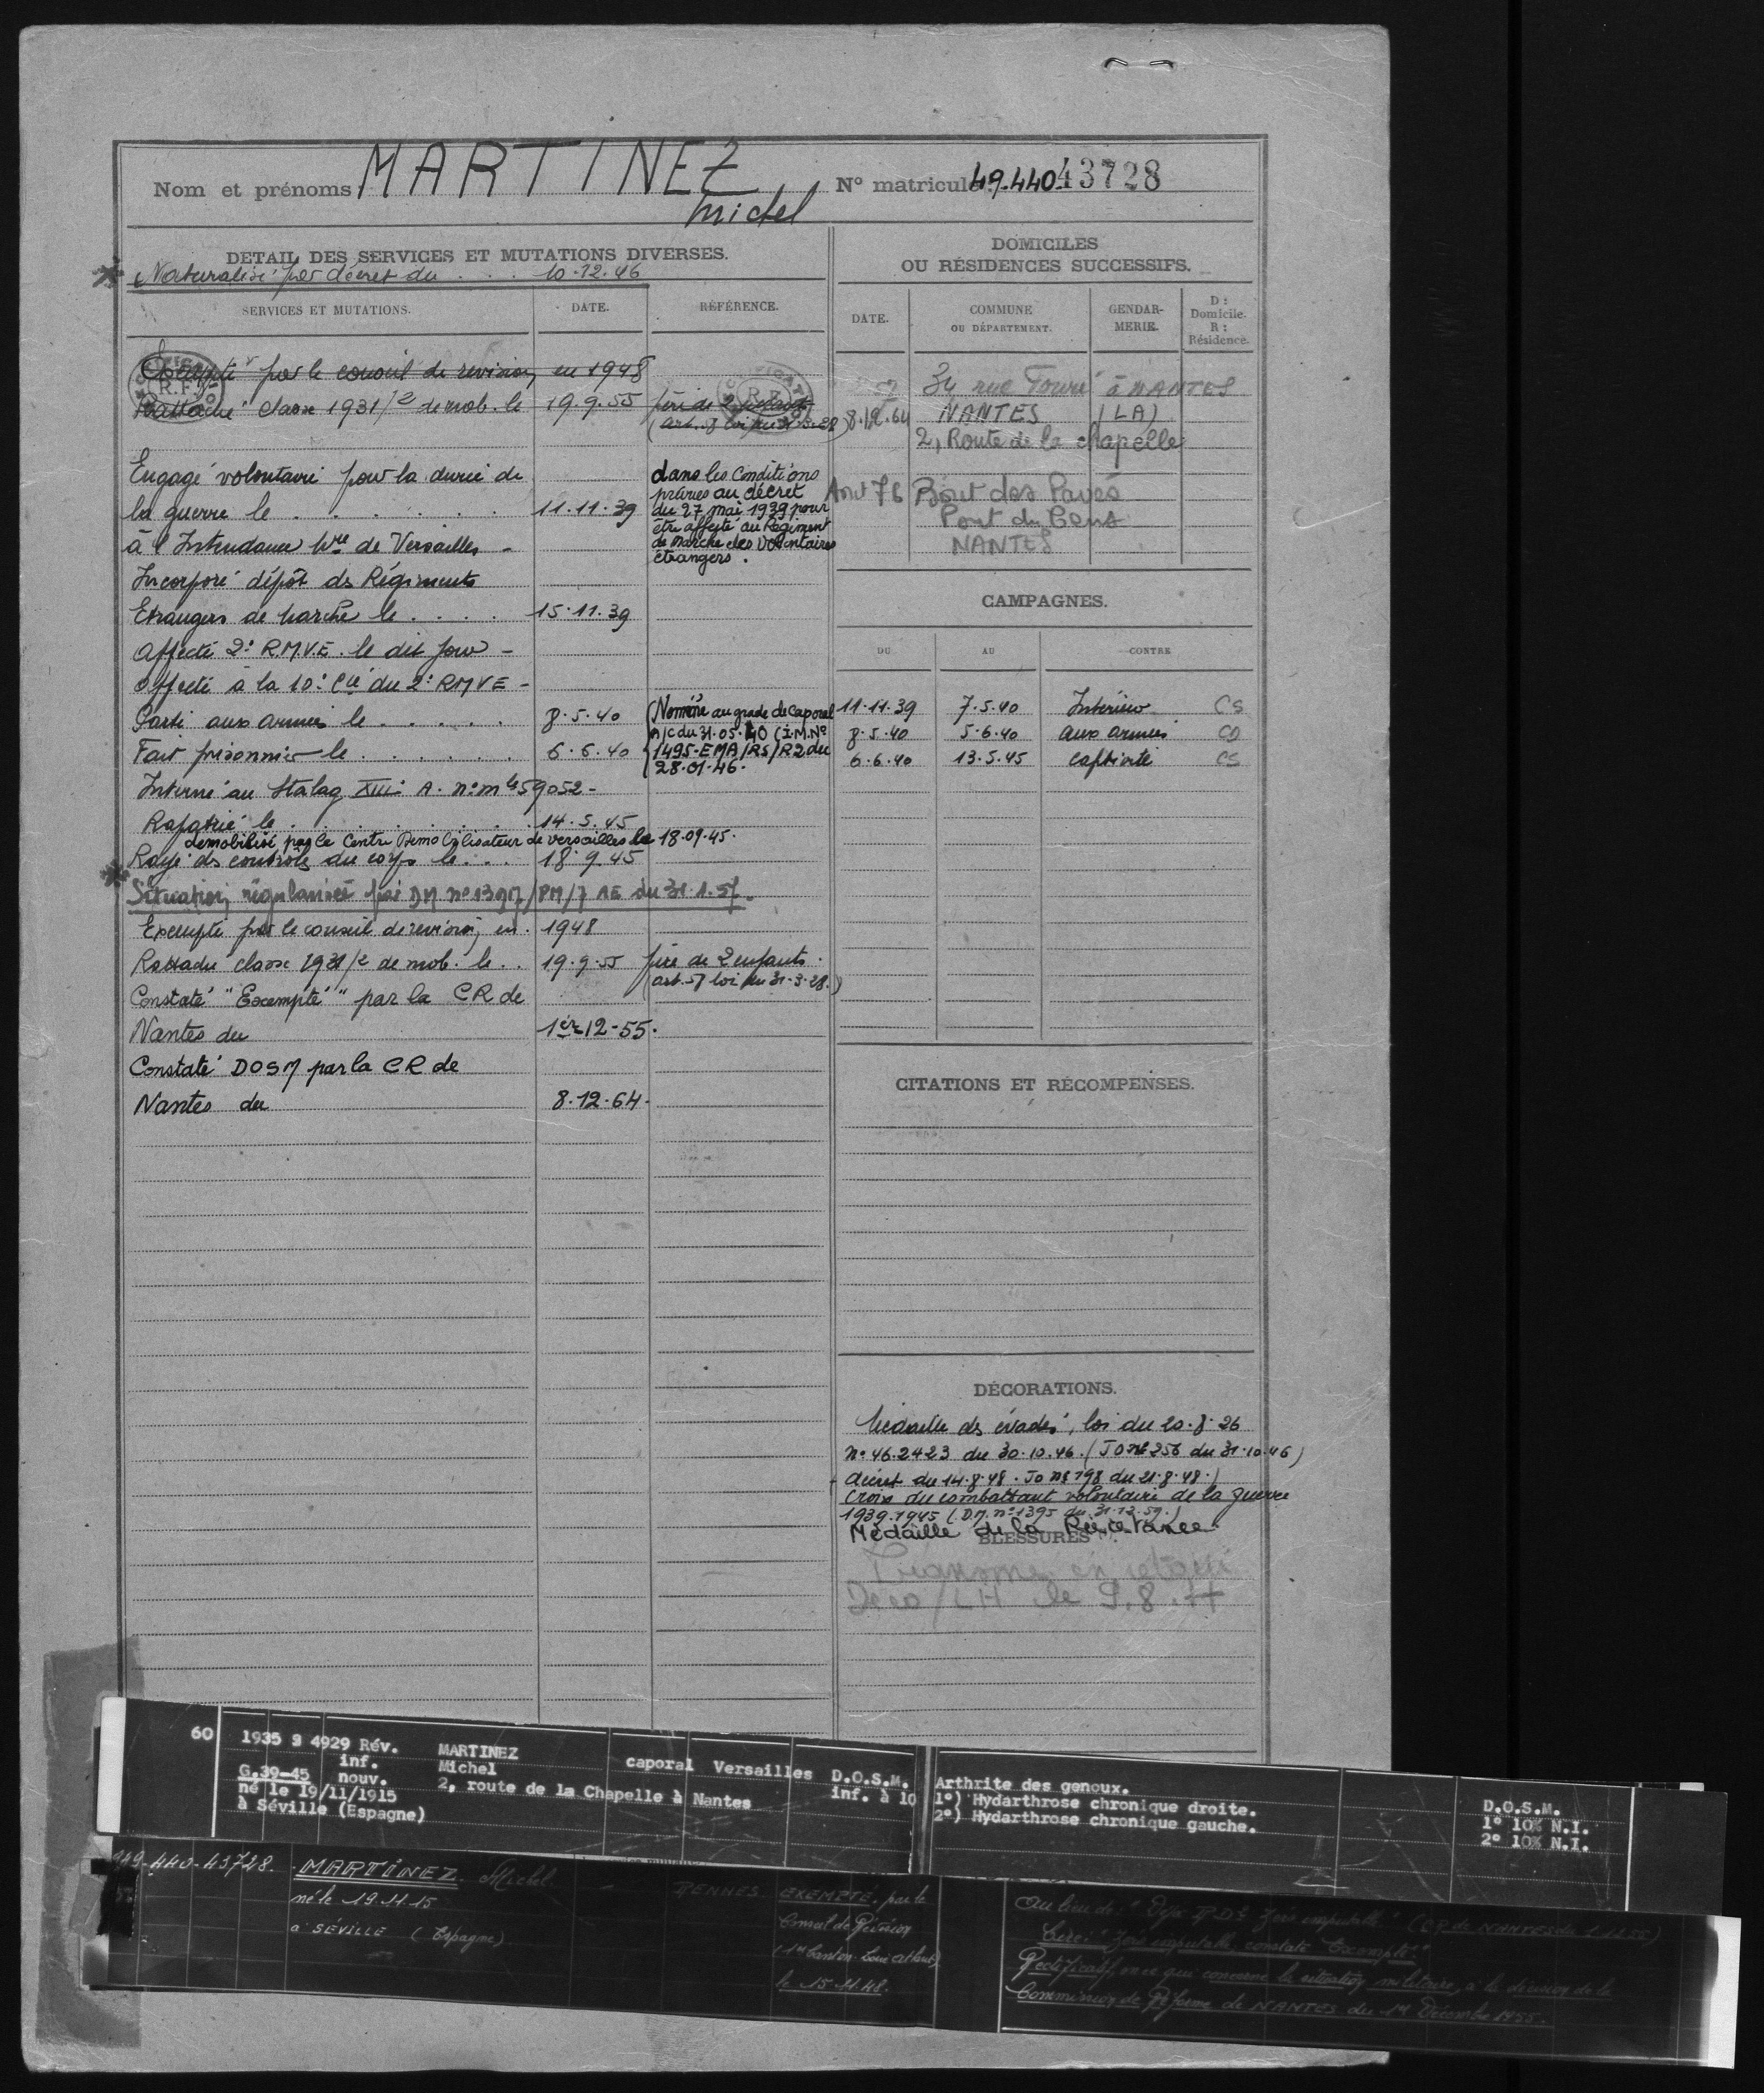 Nom et prénoms MARTINEZ
Michel
N° matricule 49.440 43728
DÉTAIL DES SERVICES ET MUTATIONS DIVERSES.
Naturalisé par décret du . . . 10.12.46
SERVICES ET MUTATIONS.
DATE.
RÉFÉRENCE.
Exempté par le conseil de revision en 1948
Rattaché classe 1931/2 de mob. le 19.9.55 père de 2 enfants
(art. 57 loi du 31-3-28)
Engagé volontaire pour la durée de
la guerre le . . . . . . 11.11.39
à l'Intendance Mre de Versailles -
dans les conditions
prévues au décret
du 27 mai 1939 pour
être affecté au Régiment
de Marche des Volontaires
étrangers.
Incorporé dépôt ds Régiments
Etrangers de Marche le . . . . 15.11.39
Affecté 2e R.M.V.E. le dit jour -
Affecté à la 10e Cie du 2e RMVE -
Parti aux armées le . . . . . 8.5.40
Fait prisonnier le . . . . . . 6.6.40
(Nommé au grade de Caporal
A/C du 31.05.40 (I.M. No
1495-EMA/RS/R2 du
28.01.46.
Interné au Stalag XIII A. n° mle 59052 -
Rapatrié le . . . . . . . . 14.5.45
démobilisé par le Centre Démobilisateur de Versailles le 18.09.45.
Rayé ds contrôles du corps le . . . 18.9.45
Situation régularisée par DM n° 1397/PM/7 AE du 31.1.57.
Exempté par le conseil de revision, en . 1948
Rattaché classe 1931/2 de mob. le . . 19.9.55 père de 2 enfants.
(art. 57 loi du 31-3-28.)
Constaté "Exempté" par la CR de
Nantes du 1er-12-55.
Constaté DOSM par la CR de
Nantes du 8.12.64.
DOMICILES
OU RÉSIDENCES SUCCESSIFS.
DATE.
COMMUNE
OU DÉPARTEMENT.
GENDAR-
MERIE.
D :
Domicile.
R :
Résidence.
34 rue Fouré à NANTES
8.12.64 NANTES (LA)
2, Route de la chapelle
Aout 76 Bout des Pavés
Pont du Cens
NANTES
CAMPAGNES.
DU
AU
CONTRE
11.11.39 7.5.40 Intérieur CS
8.5.40 5.6.40 aux armées CD
6.6.40 13.5.45 captivité CS
CITATIONS ET RÉCOMPENSES.
DÉCORATIONS.
Médaille ds évadés, loi du 20.8.26
n° 46.2423 du 30.10.46. (JO n° 256 du 31.10.46)
décret du 14.8.48. Jo n° 198 du 21.8.48.)
Croix du combattant volontaire de la guerre
1939.1945 (D.M. n° 1395 du 31.12.59.)
Médaille de la Résistance.
BLESSURES
LH le 9.8.77
60
1935 S 4929 Rév.
inf.
nouv.
G.39-45
né le 19/11/1915
à Séville (Espagne)
MARTINEZ
Michel
2, route de la Chapelle à Nantes
caporal
Versailles
D.O.S.M.
inf. à 10
Arthrite des genoux.
1°) Hydarthrose chronique droite.
2°) Hydarthrose chronique gauche.
D.O.S.M.
1° 10% N.I.
2° 10% N.I.
49-440-43728. MARTINEZ. Michel.
né le 19.11.15
à SÉVILLE (Espagne)
RENNES
EXEMPTÉ par le
Conseil de Révision
le 15.11.48.
Rectificatif, en ce qui concerne la situation militaire, à la décision de la
Commission de Réforme de NANTES du 1er Décembre 1955.